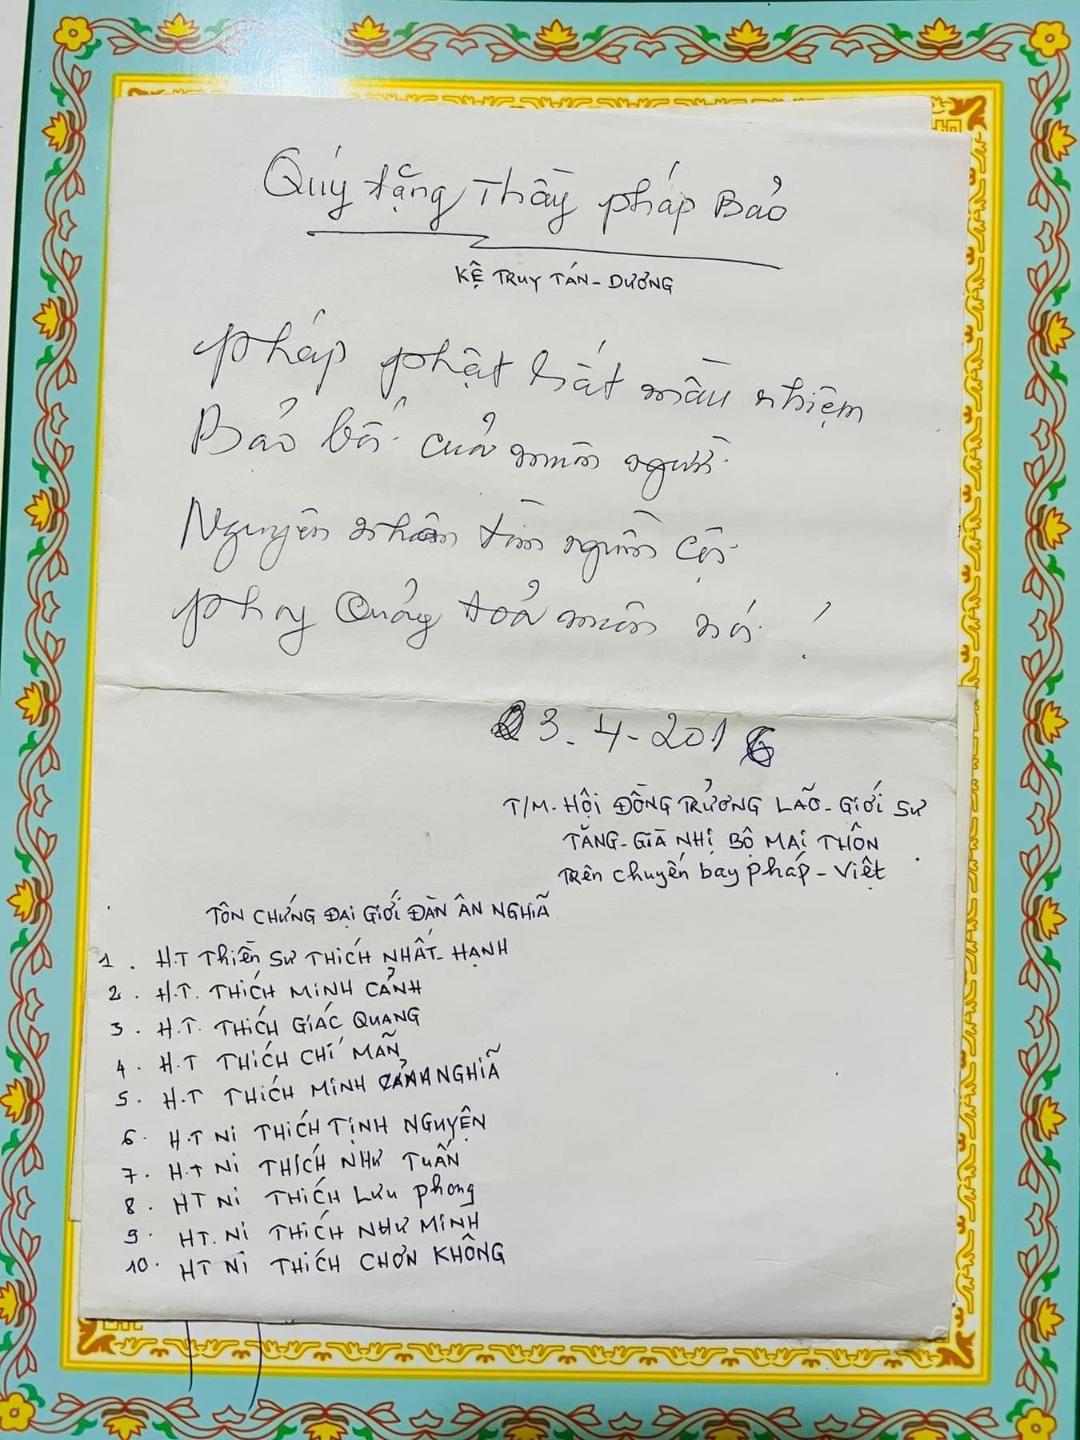 Qúy tặng Thầy pháp Bảo
KỆ TRUY TÁN - DƯƠNG
pháp phật hát mầu nhiệm
Bảo bối của muôn người
Nguyên nhân tìm nguồn cội
phay Quảng toả muôn nơi !
23-4-2016
T/M. HỘI ĐỒNG TRƯỞNG LÃO - GIỚI SƯ
TĂNG - GIÀ NHỊ BỘ MAI THÔN
TRÊN chuyến bay pháp - Việt
TÔN CHỨNG ĐẠI GIỚI ĐÀN ÂN NGHĨA
1. H.T Thiền SƯ THÍCH NHẤT - HẠNH
2. H.T. THÍCH MINH CẢNH
3. H.T. THÍCH GIÁC QUANG
4. H.T THÍCH CHÍ MÃN
5. H.T THÍCH MINH NGHĨA
6. H.T Ni THÍCH TỊNH NGUYỆN
7. H.T Ni THÍCH NHƯ TUẤN
8. HT Ni THÍCH LƯU phong
9. HT. Ni THÍCH NHƯ MINH
10. HT Ni THÍCH CHƠN KHÔNG